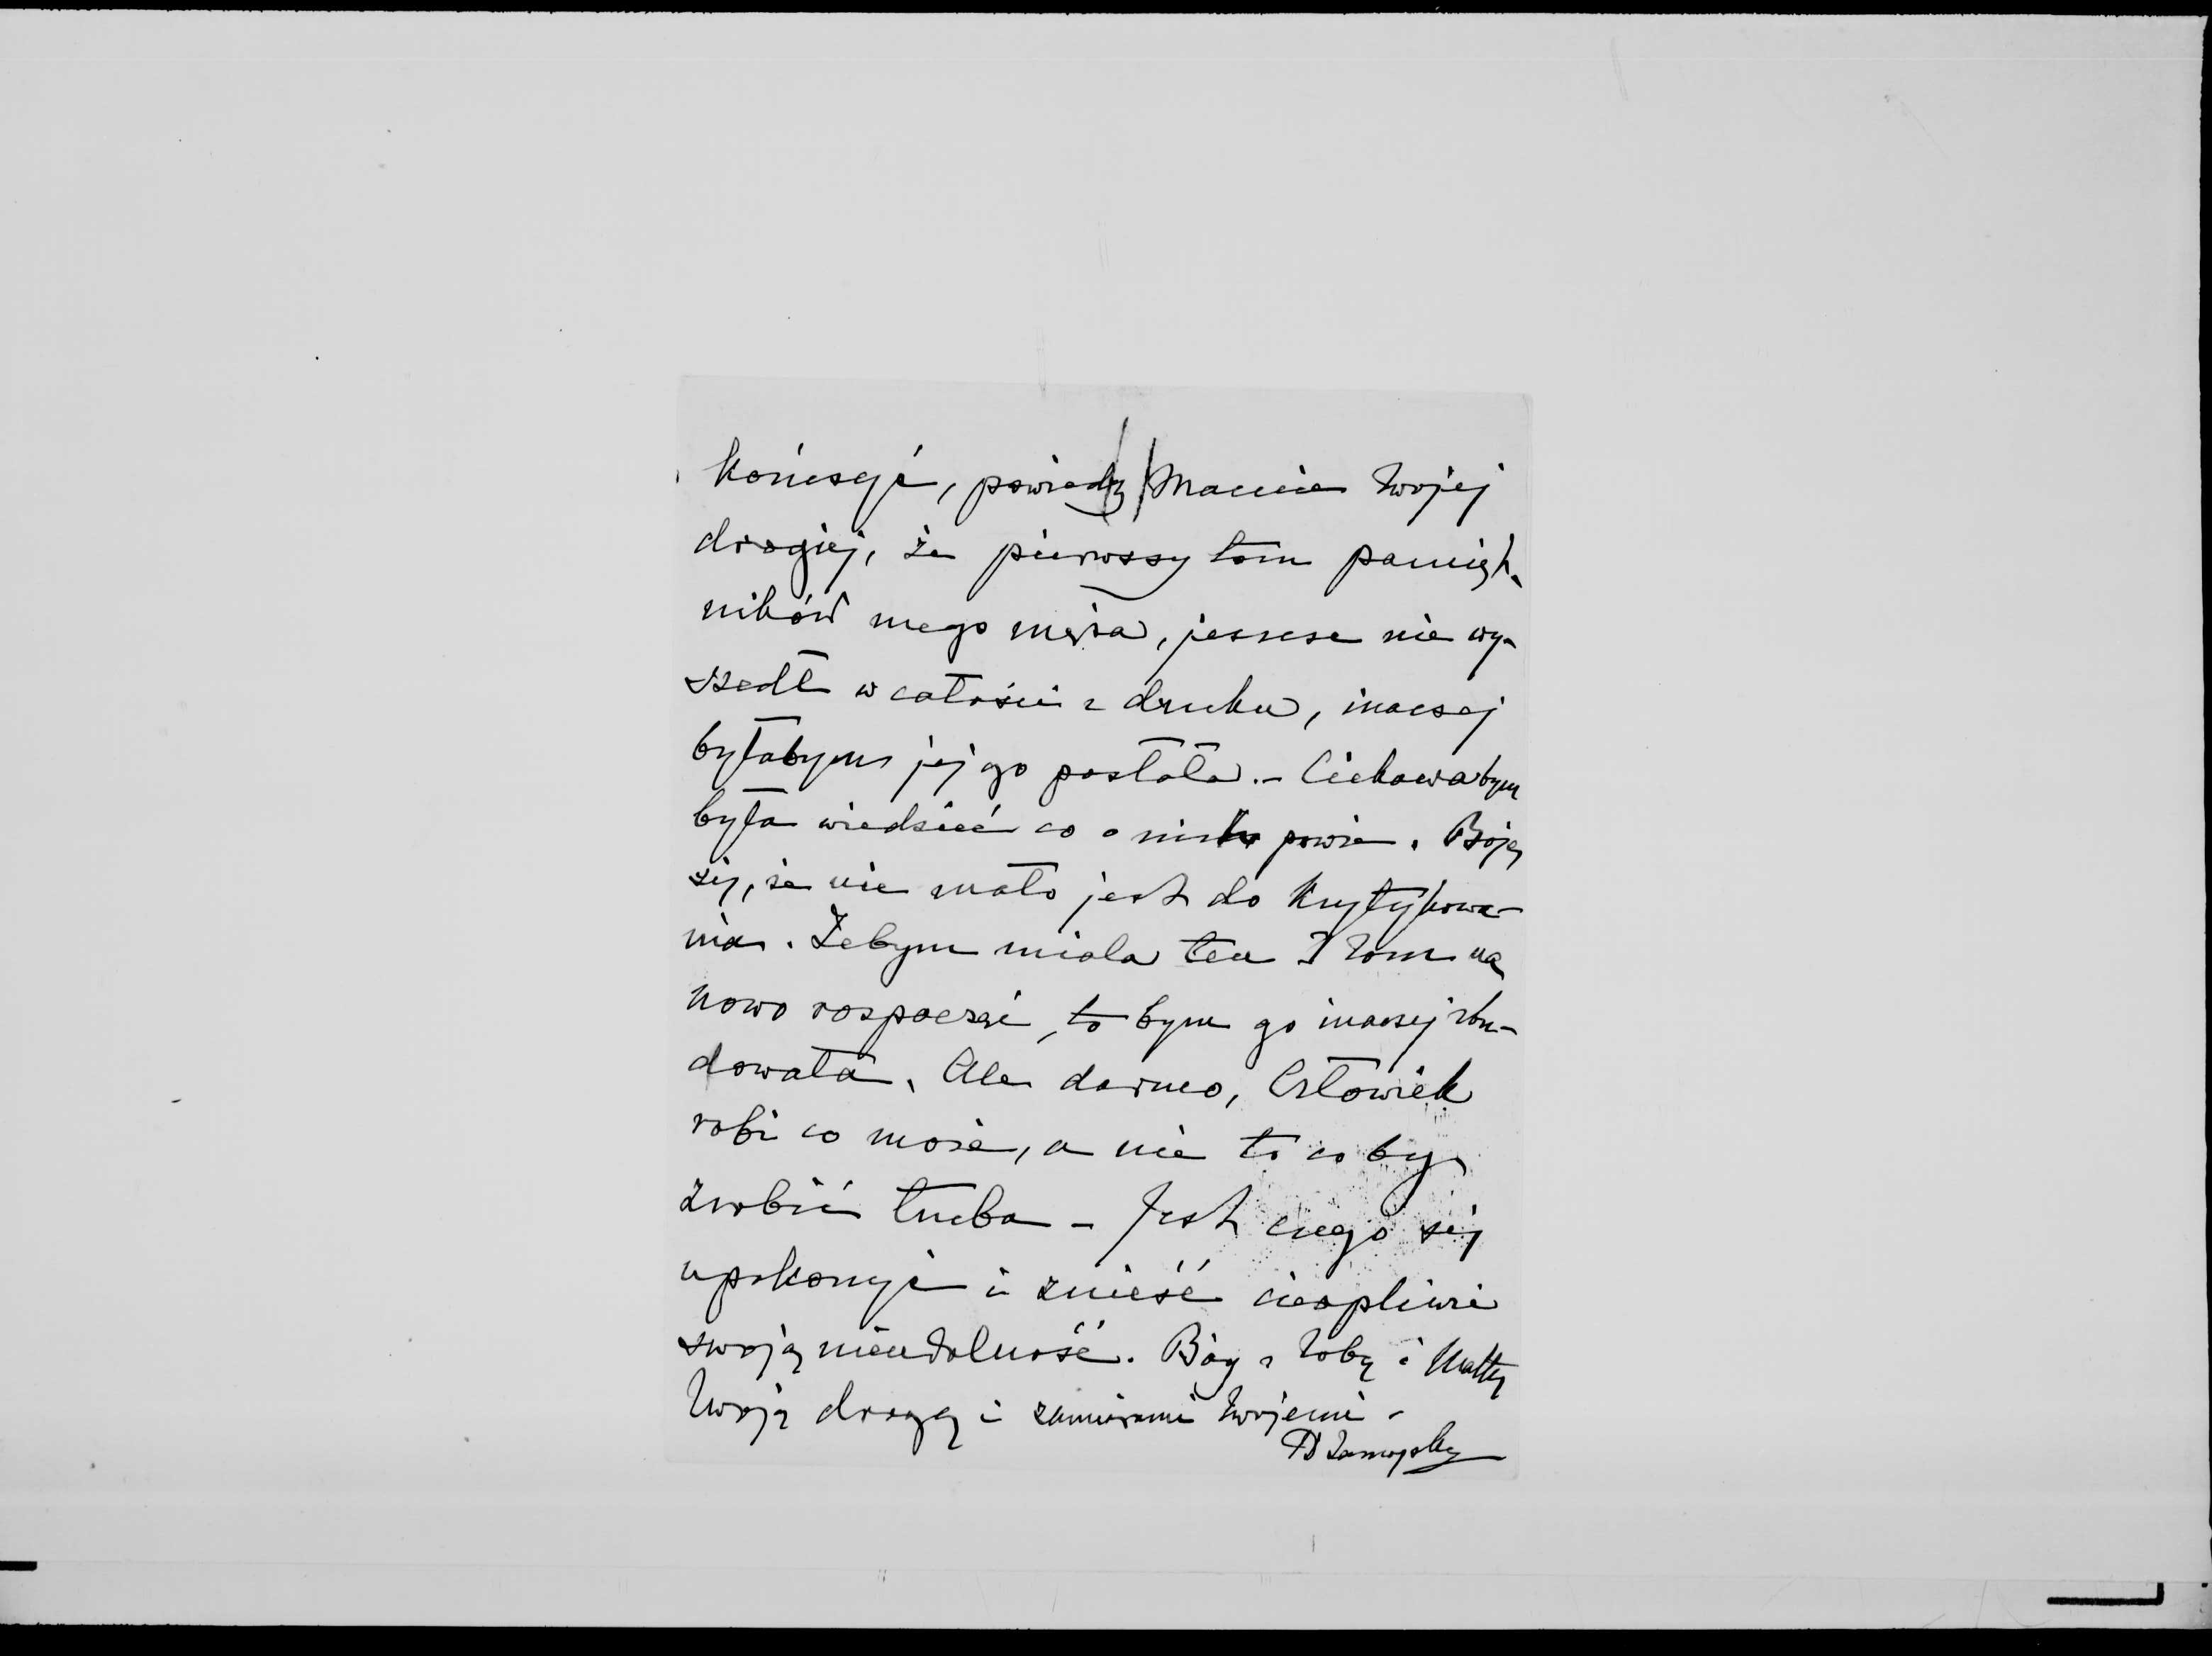 kończyć, powiedz Mamie twojej
drogiej, że pierwszy tom pamięt-
ników mego męża, jeszcze nie wy-
szedł w całości z druku, inaczej
byłabym jej go posłała. – Ciekawabym
była wiedzieć co o nim powie. Boję
się, że nie mało jest do krytykowa-
nia. Żebym miała ten I tom na
nowo rozpocząć, to bym go inaczej zbu-
dowała. Ale darmo, Człowiek
robi co może, a nie to co by
zrobić trzeba – Jest czego się
upokorzyć i znieść cierpliwie
swoją nieudolność. Bóg z Tobą i Matką
Twoją drogą i zamiarami twojemi –
Zamoyska